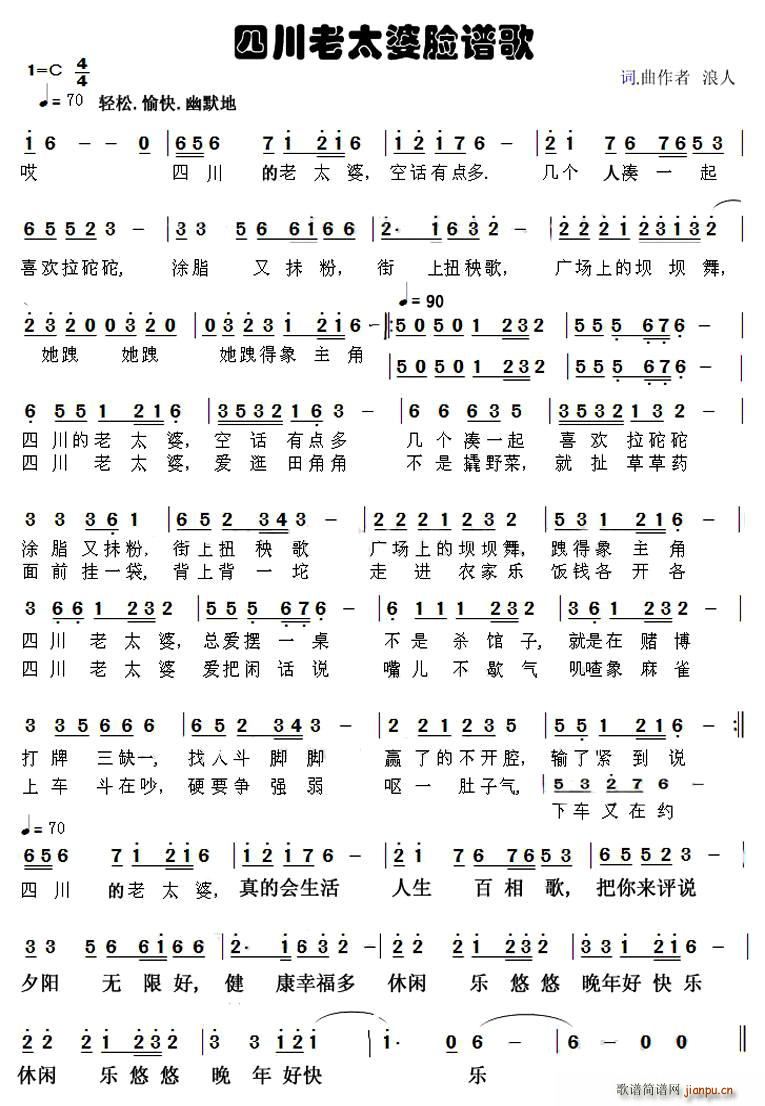 四川老太婆脸谱歌
1=C 4/4
♩=70 轻松.愉快.幽默地
词.曲作者 浪人
i 6 - - 0 | 6 5 6 7 i 2 i 6 | i 2 i 7 6 - | 2 i 7 6 7 6 5 3 |
哎 四川 的老太婆,空话有点多. 几个 人凑一起
6 5 5 2 3 - | 3 3 5 6 6 i 6 6 | 2· i 6 3 2 | 2 2 2 i 2 3 i 3 2
喜欢拉砣砣, 涂脂 又抹粉, 街 上扭秧歌, 广场上的坝坝舞,
♩= 90
2 3 2 0 0 3 2 0 | 0 3 2 3 i 2 2 i 6 - :5 0 5 0 1 2 3 2 | 5 5 5 6 7 6 - |
她跩 她跩 她跩得象主角
5 0 5 0 1 2 3 2 | 5 5 5 6 7 6 - |
6 5 5 1 2 1 6 | 3 5 3 2 1 6 3 - | 6 6 6 3 5 | 3 5 3 2 1 3 2 |
四川的老太婆, 空话有点多 几个凑一起 喜欢拉砣砣
四川 老太婆,爱逛田角角 不是撬野菜,就扯草草药
3 3 3 3 6 1 | 6 5 2 3 4 3 - | 2 2 2 1 2 3 2 | 5 5 3 2 1 6 - |
涂脂又抹粉,街上扭秧歌 广场上的坝坝舞,跩得象主角
面前挂一袋,背上背一坨 走进农家乐 饭钱各开各
3 6 6 1 2 3 2 | 5 5 5 6 7 6 - | 6 1 2 3 2 | 3 6 1 2 1 6 |
四川老太婆, 总爱摆一桌 不是杀馆子,就是在赌博
四川老太婆 爱把闲话说 嘴儿不歇气 叽喳象麻雀
3 3 5 6 6 6 | 6 5 2 3 4 3 - | 2 2 2 1 2 3 5 | 5 5 1 2 1 6 - :
打牌三缺一,找人斗脚脚 赢了的不开腔,输了紧到说
上车斗在吵,硬要争强弱 呕一肚子气,
5 3 2 7 6 -
下车又在约
♩= 70
6 5 6 7 i 2 i 6 | i 2 i 7 6 - | 2 i 7 6 7 6 5 3 | 6 5 5 2 3 - |
四川 的老太婆, 真的会生活 人生 百相歌, 把你来评说
3 3 5 6 6 i 6 6 | 2· i 6 3 2 - | 2 2 2 i 2 3 2 | 3 3 2 i 2 6 |
夕阳 无限好,健 康幸福多 休闲 乐悠悠 晚年好快乐
2 2 2 i 2 3 2 2 | 3 3 i 2 i | i· 0 6 - | i - 0 0 ‖
休闲 乐悠悠 晚年好快 乐
歌谱简谱网 jianpu.cn